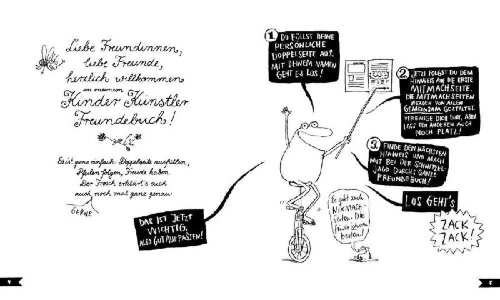 Liebe Freundinnen,
liebe Freunde,
herzlich willkommen
in meinem
Kinder Künstler
Freundebuch!
Es ist ganz einfach. Doppelseite ausfüllen,
Pfeilen folgen, Freude haben.
Der Frosch erklärt's euch
auch noch mal ganz genau.
GERNE
DAS IST JETZT
WICHTIG,
ALSO GUT AUFPASSEN!
1 DU FÜLLST DEINE
PERSÖNLICHE
DOPPELSEITE AUS.
MIT DEINEM NAMEN
GEHT ES LOS!
2 JETZT FOLGST DU DEM
HINWEIS AUF DIE ERSTE
MITMACHSEITE.
DIE MITMACHSEITEN
WERDEN VON ALLEN
GEMEINSAM GESTALTET.
VEREWIGE DICH DORT, ABER
LASS DEN ANDEREN AUCH
NOCH PLATZ!
3 FINDE DEN NÄCHSTEN
HINWEIS UND MACH
MIT BEI DER SCHNITZEL-
JAGD DURCHS GANZE
FREUNDEBUCH!
LOS GEHT'S
ZACK
ZACK!
Es gibt auch